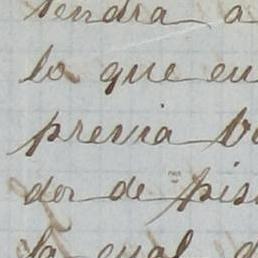 tendra a
lo que en
previa
dor de pis
la cual